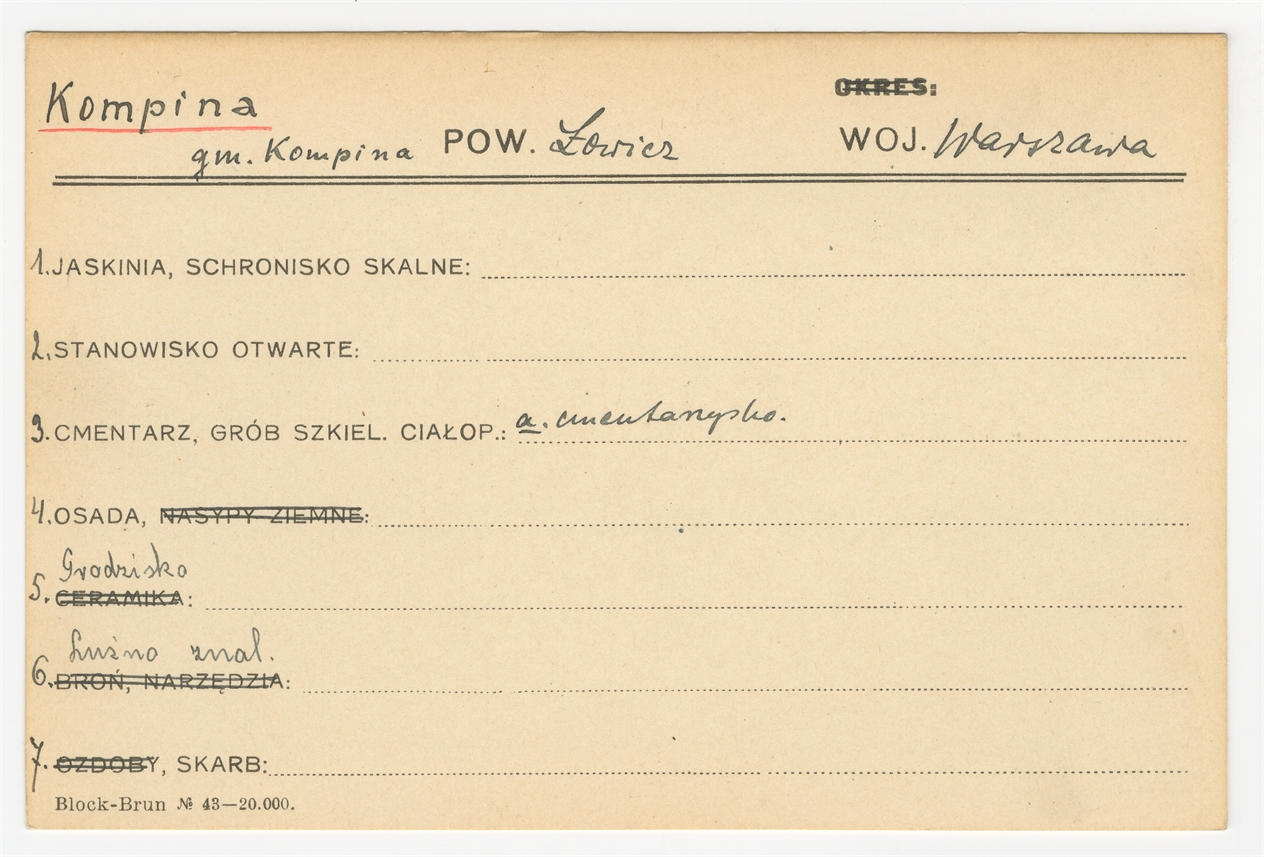 Kompina OKRES:
gm. Kompina POW. Łowicz WOJ. Warszawa
1. JASKINIA, SCHRONISKO SKALNE:
2. STANOWISKO OTWARTE:
3. CMENTARZ, GRÓB SZKIEL. CIAŁOP.: a. cmentarzysko.
4. OSADA, NASYPY ZIEMNE:
Grodzisko
5. CERAMIKA:
Luźno znal.
6. BROŃ, NARZĘDZIA:
7. OZDOBY, SKARB:
Block-Brun № 43—20.000.